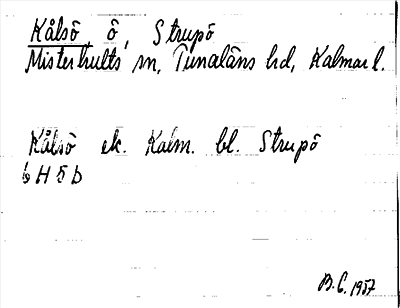 Kålsö, ö, Strupö
Misterhults sn, Tunaläns hd, Kalmar l.
Kålsö ek. Kalm. bl. Strupö
6 H 5 b
B.C. 1957